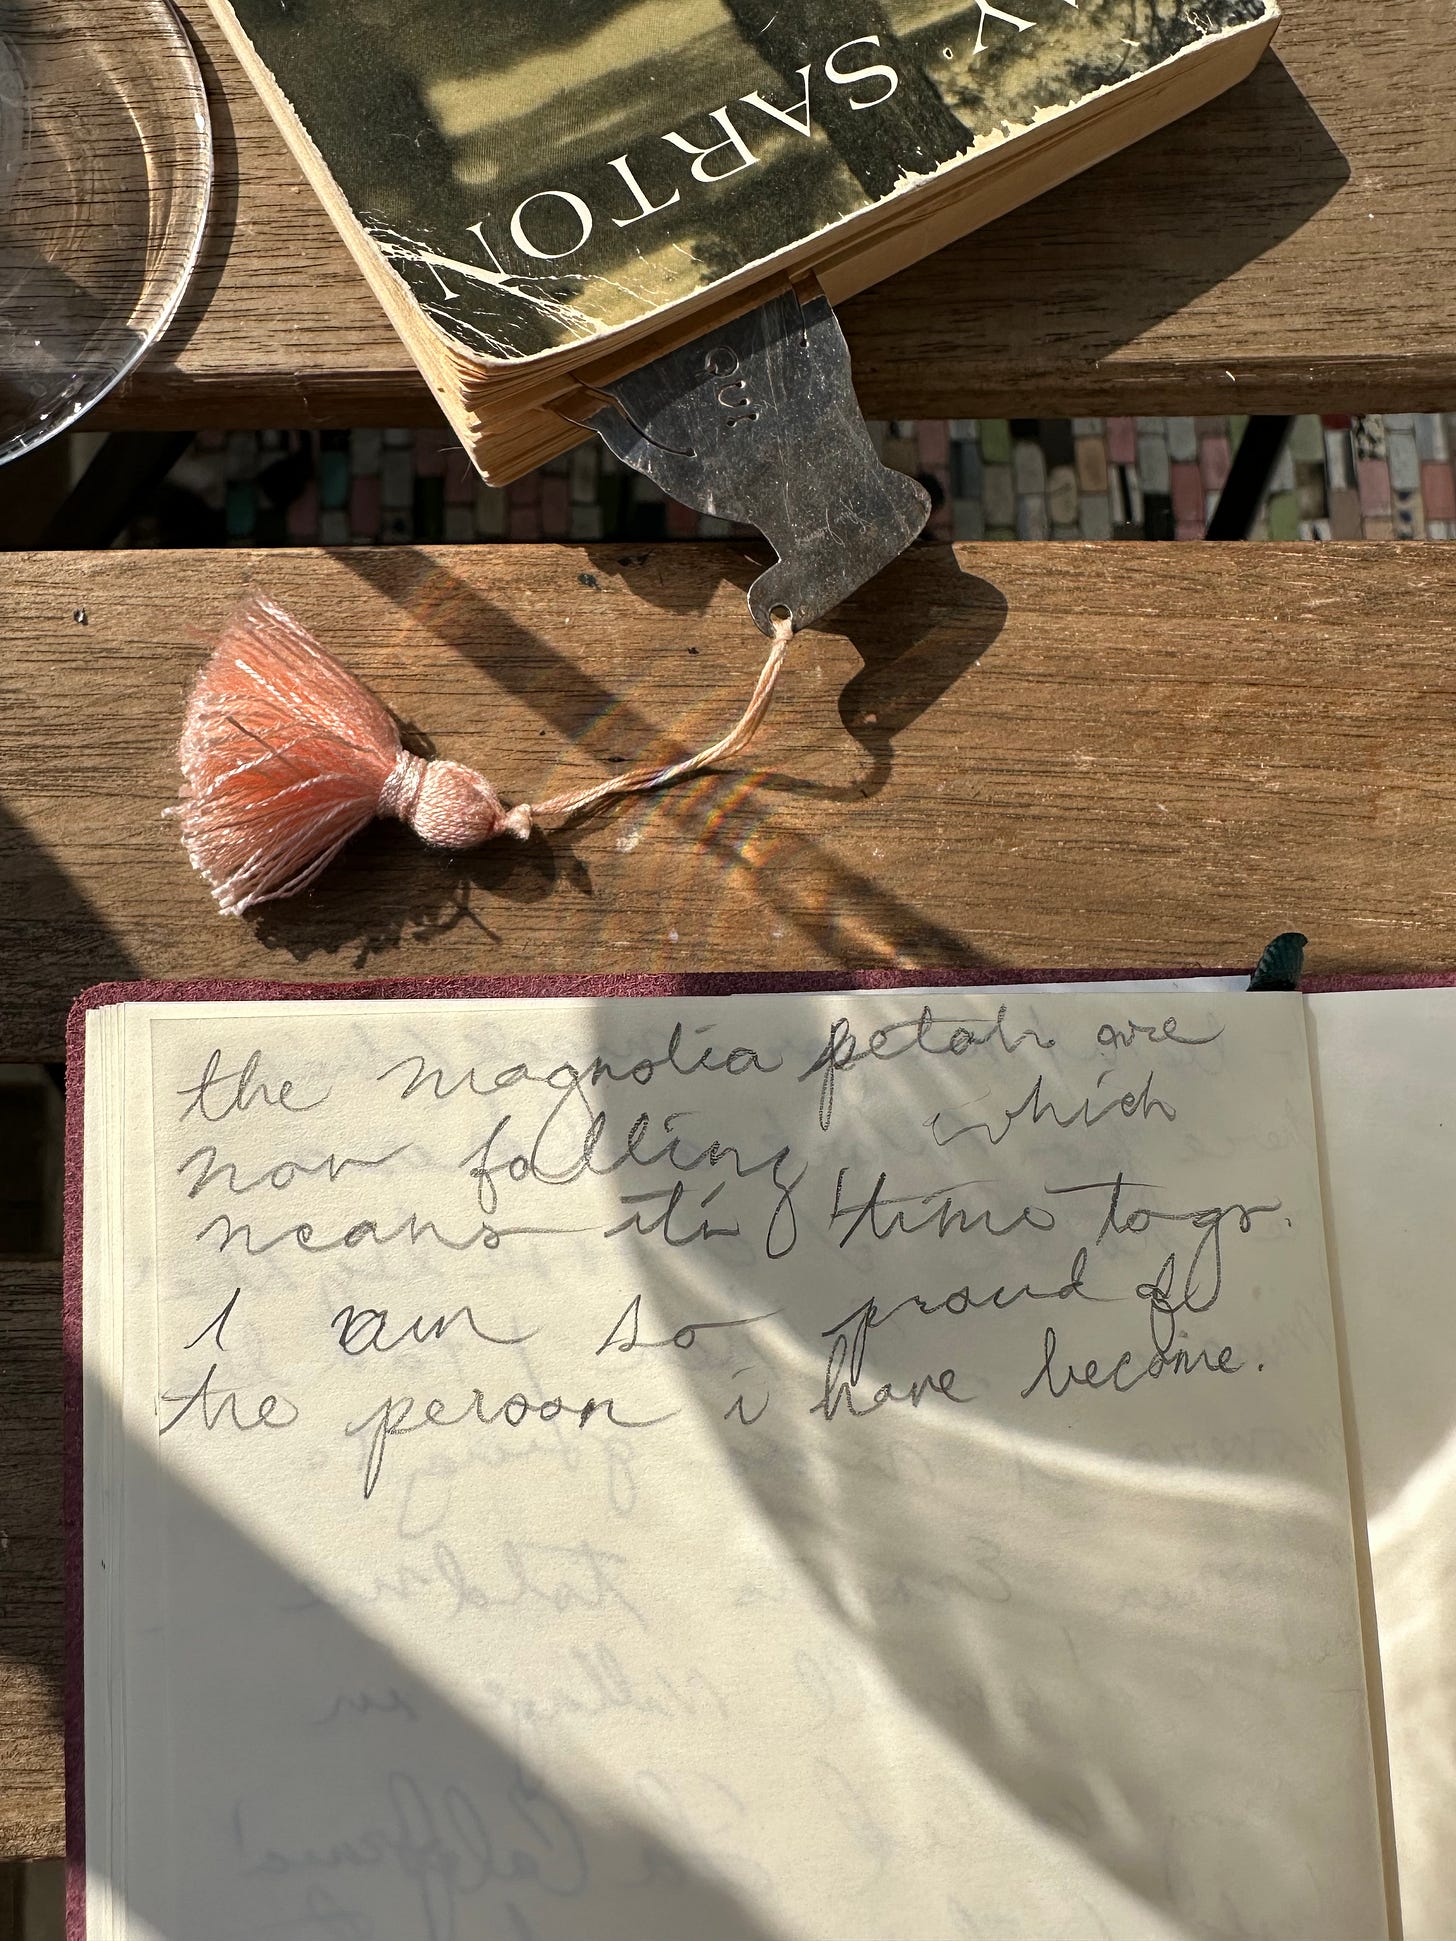 AY
SARTON
the magnolia petals are
now falling which
means it's time to go.
I am so proud of
the person i have become.